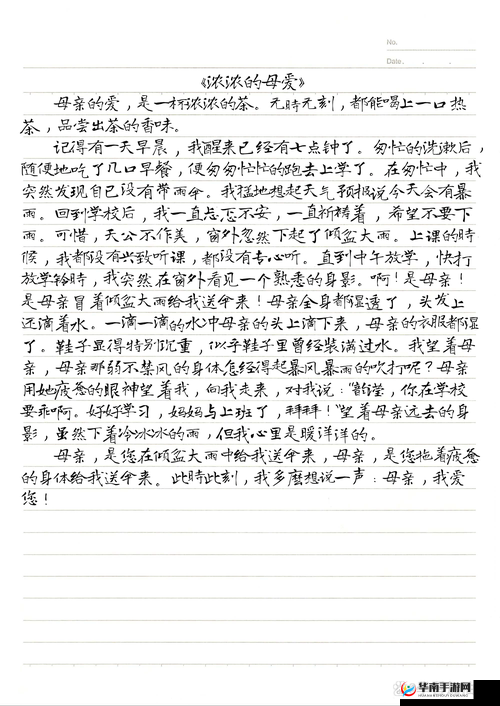 No.
Date . . .
《浓浓的母爱》
母亲的爱，是一杯浓浓的茶。无時无刻，都能喝上一口热
茶，品尝出茶的香味。
记得有一天早晨，我醒来已经有七点钟了。匆忙的洗漱后，
随便地吃了几口早餐，便匆匆忙忙的跑去上学了。在匆忙中，我
突然发现自己没有带雨伞。我猛地想起天气预报说今天会有暴
雨。回到学校后，我一直忐忑不安，一直祈祷着，希望不要下
雨。可惜，天公不作美，窗外忽然下起了倾盆大雨。上课的時
候，我都没有兴致听课，都没有专心听。直到中午放学，快打
放学铃時，我突然在窗外看见一个熟悉的身影。啊！是母亲！
是母亲冒着倾盆大雨给我送伞来！母亲全身都湿透了，头发上
还滴着水。一滴一滴的水冲母亲的头上滴下来，母亲的衣服都湿
了。鞋子显得特别沉重，似乎鞋子里曾经装满过水。我望着母
亲，母亲那弱不禁风的身体怎经得起暴风暴雨的吹打呢？母亲
用她疲惫的眼神望着我，向我走来，对我说：“韵莹，你在学校
要乖啊。好好学习，妈妈去上班了，拜拜！”望着母亲远去的身
影，虽然下着冷冰冰的雨，但我心里是暖洋洋的。
母亲，是您在倾盆大雨中给我送伞来，母亲，是您拖着疲惫
的身体给我送伞来。此時此刻，我多麽想说一声：母亲，我爱
您！
华南手游网